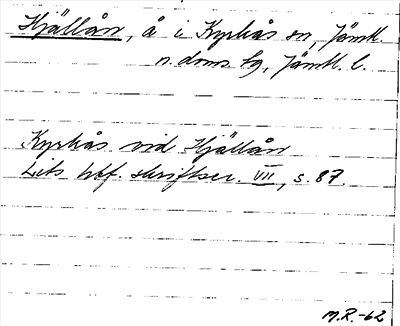 Hjällån, å i Kyrkås sn, Jämtl.
n. doms. hg, Jämtl. l.
Kyrkås vid Hjällån
Lits hbf. skriftser. VII, s. 87.
M.R.-62